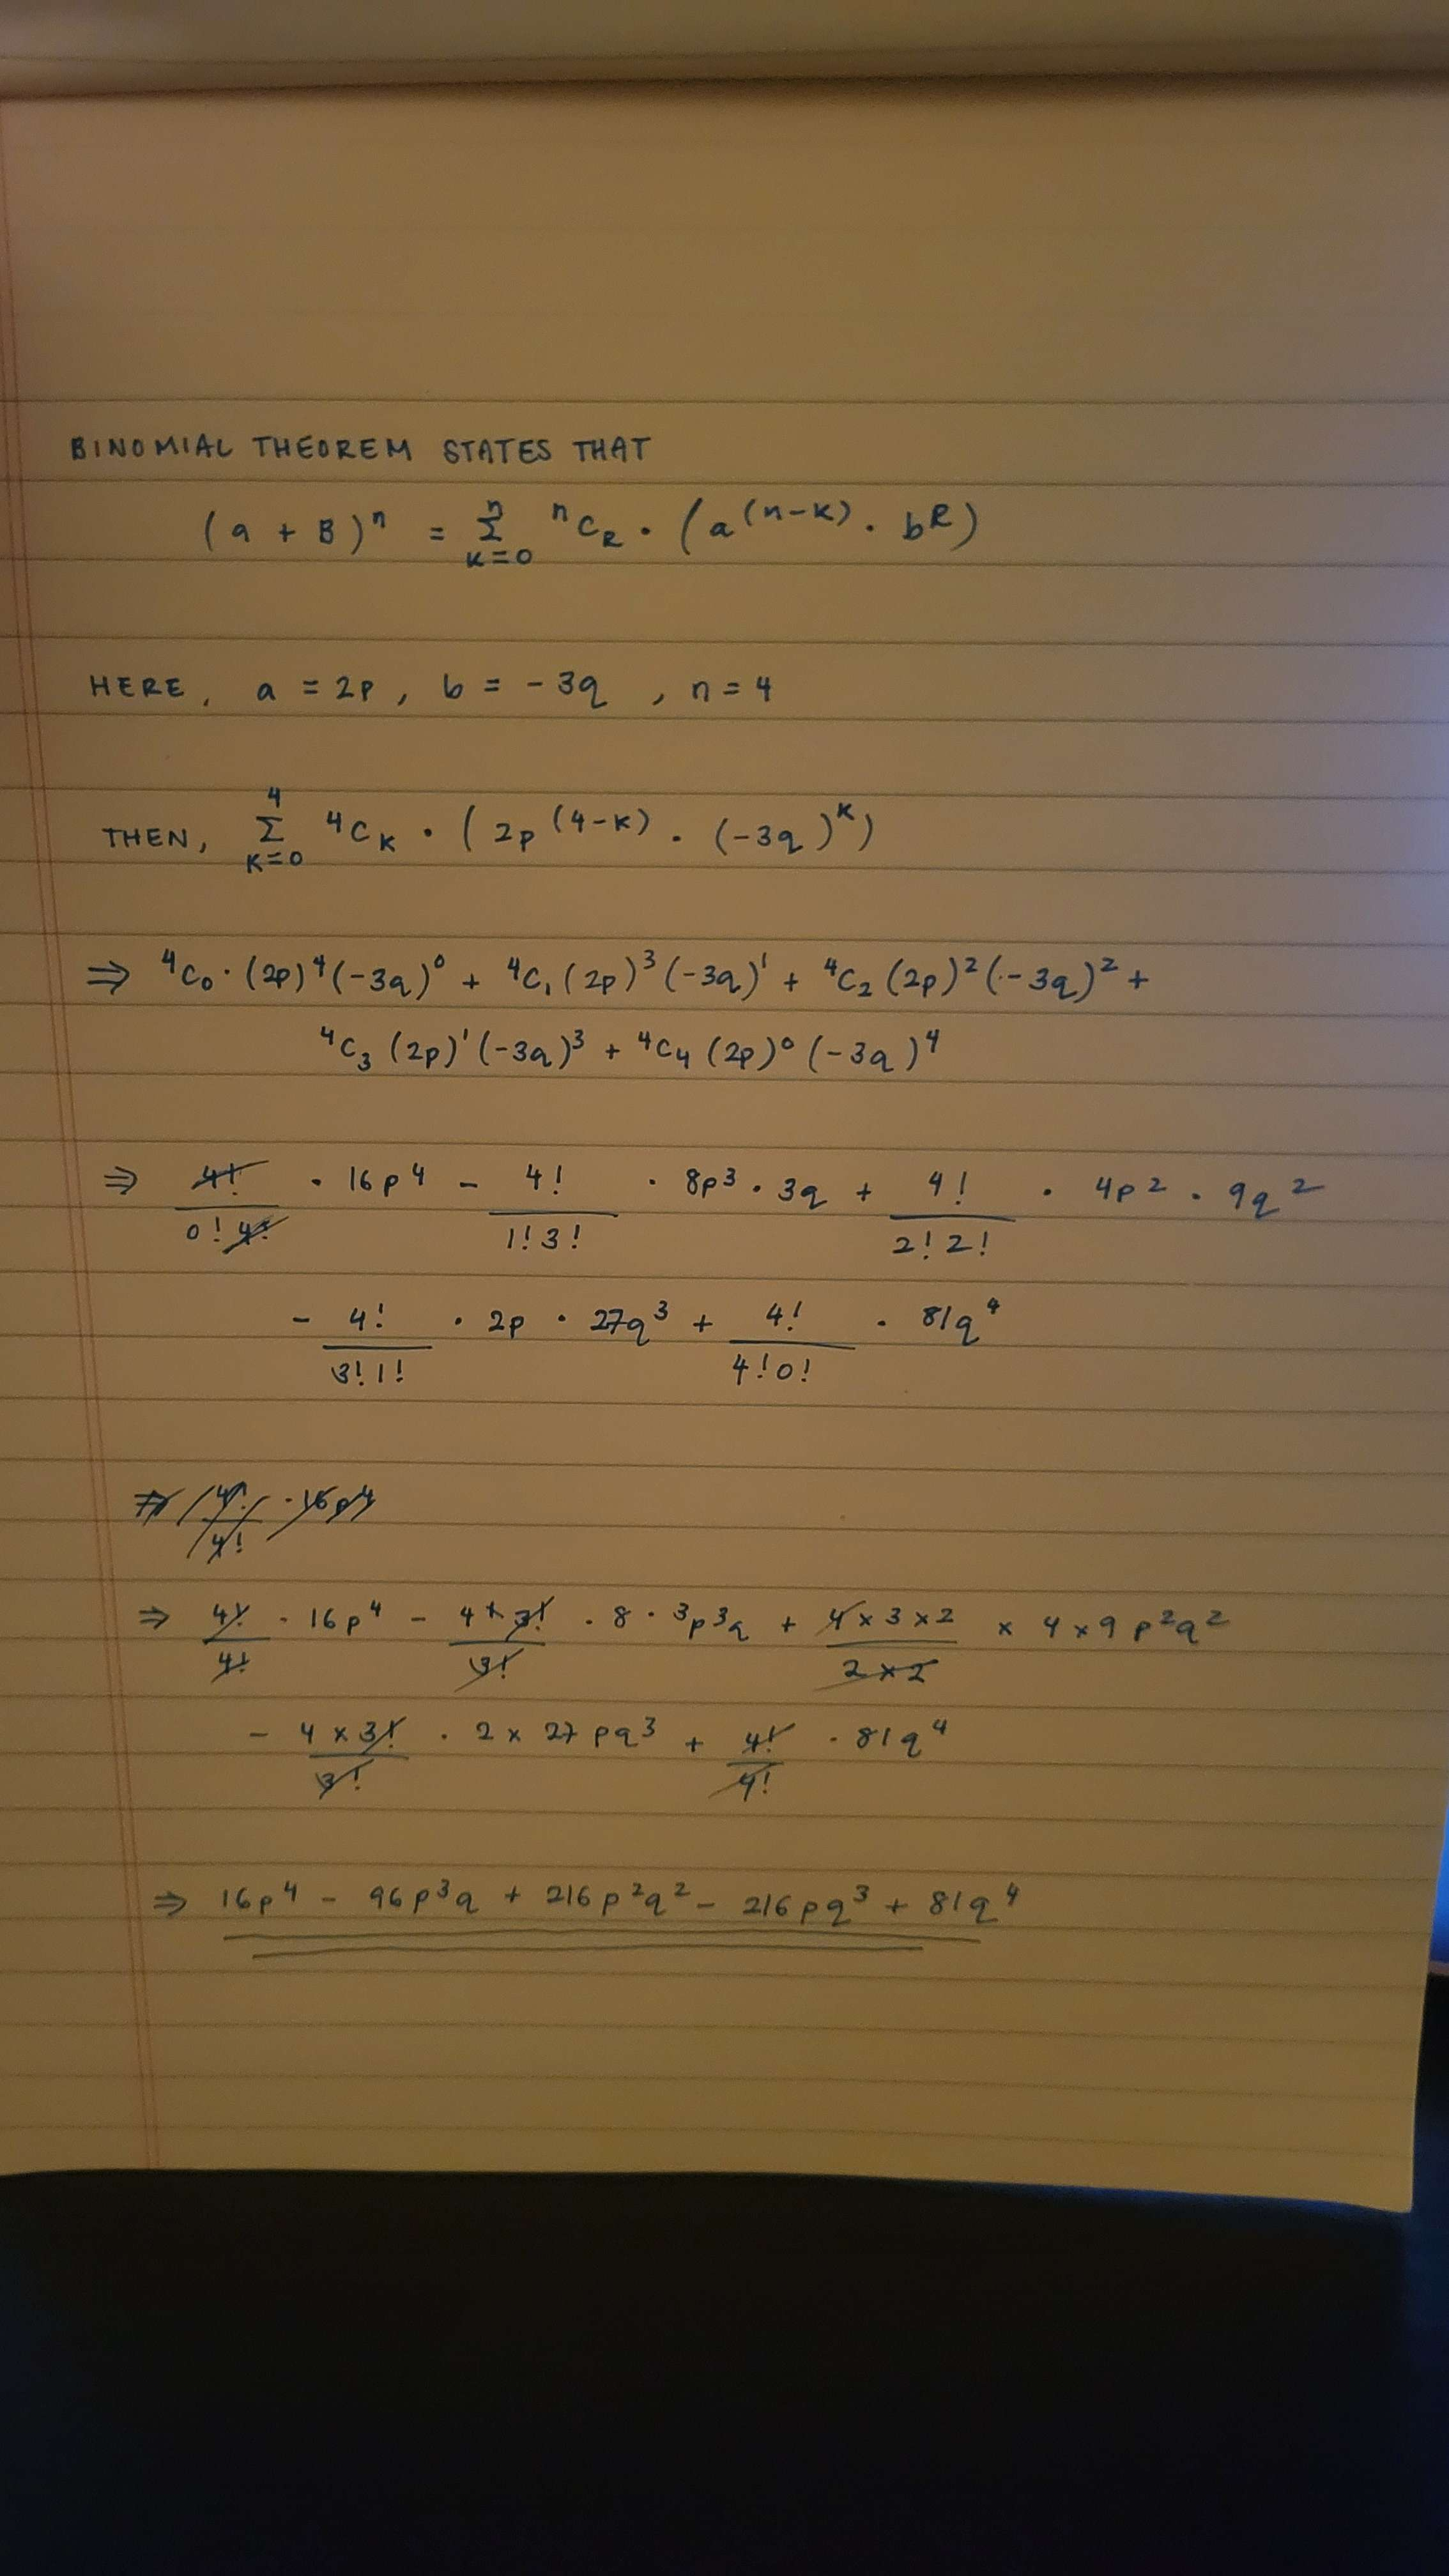 BINOMIAL THEOREM STATES THAT
(a + B)ⁿ = Σ_{K=0}^{n} ⁿC_R · (a^(n-K) · b^R)
HERE, a = 2p, b = -3q, n = 4
THEN, Σ_{K=0}^{4} ⁴C_K · (2p^(4-K) · (-3q)^K)
⇒ ⁴C₀ · (2p)⁴(-3q)⁰ + ⁴C₁(2p)³(-3q)¹ + ⁴C₂(2p)²(-3q)² +
⁴C₃(2p)¹(-3q)³ + ⁴C₄(2p)⁰(-3q)⁴
⇒ 4!/(0!4!) · 16p⁴ - 4!/(1!3!) · 8p³ · 3q + 4!/(2!2!) · 4p² · 9q²
- 4!/(3!1!) · 2p · 27q³ + 4!/(4!0!) · 81q⁴
⇒ 4!/4! · 16p⁴
⇒ 4!/4! · 16p⁴ - 4×3!/3! · 8 · 3p³q + 4×3×2/2×2 × 4×9 p²q²
- 4×3!/3! · 2×27 pq³ + 4!/4! · 81q⁴
⇒ 16p⁴ - 96p³q + 216p²q² - 216pq³ + 81q⁴